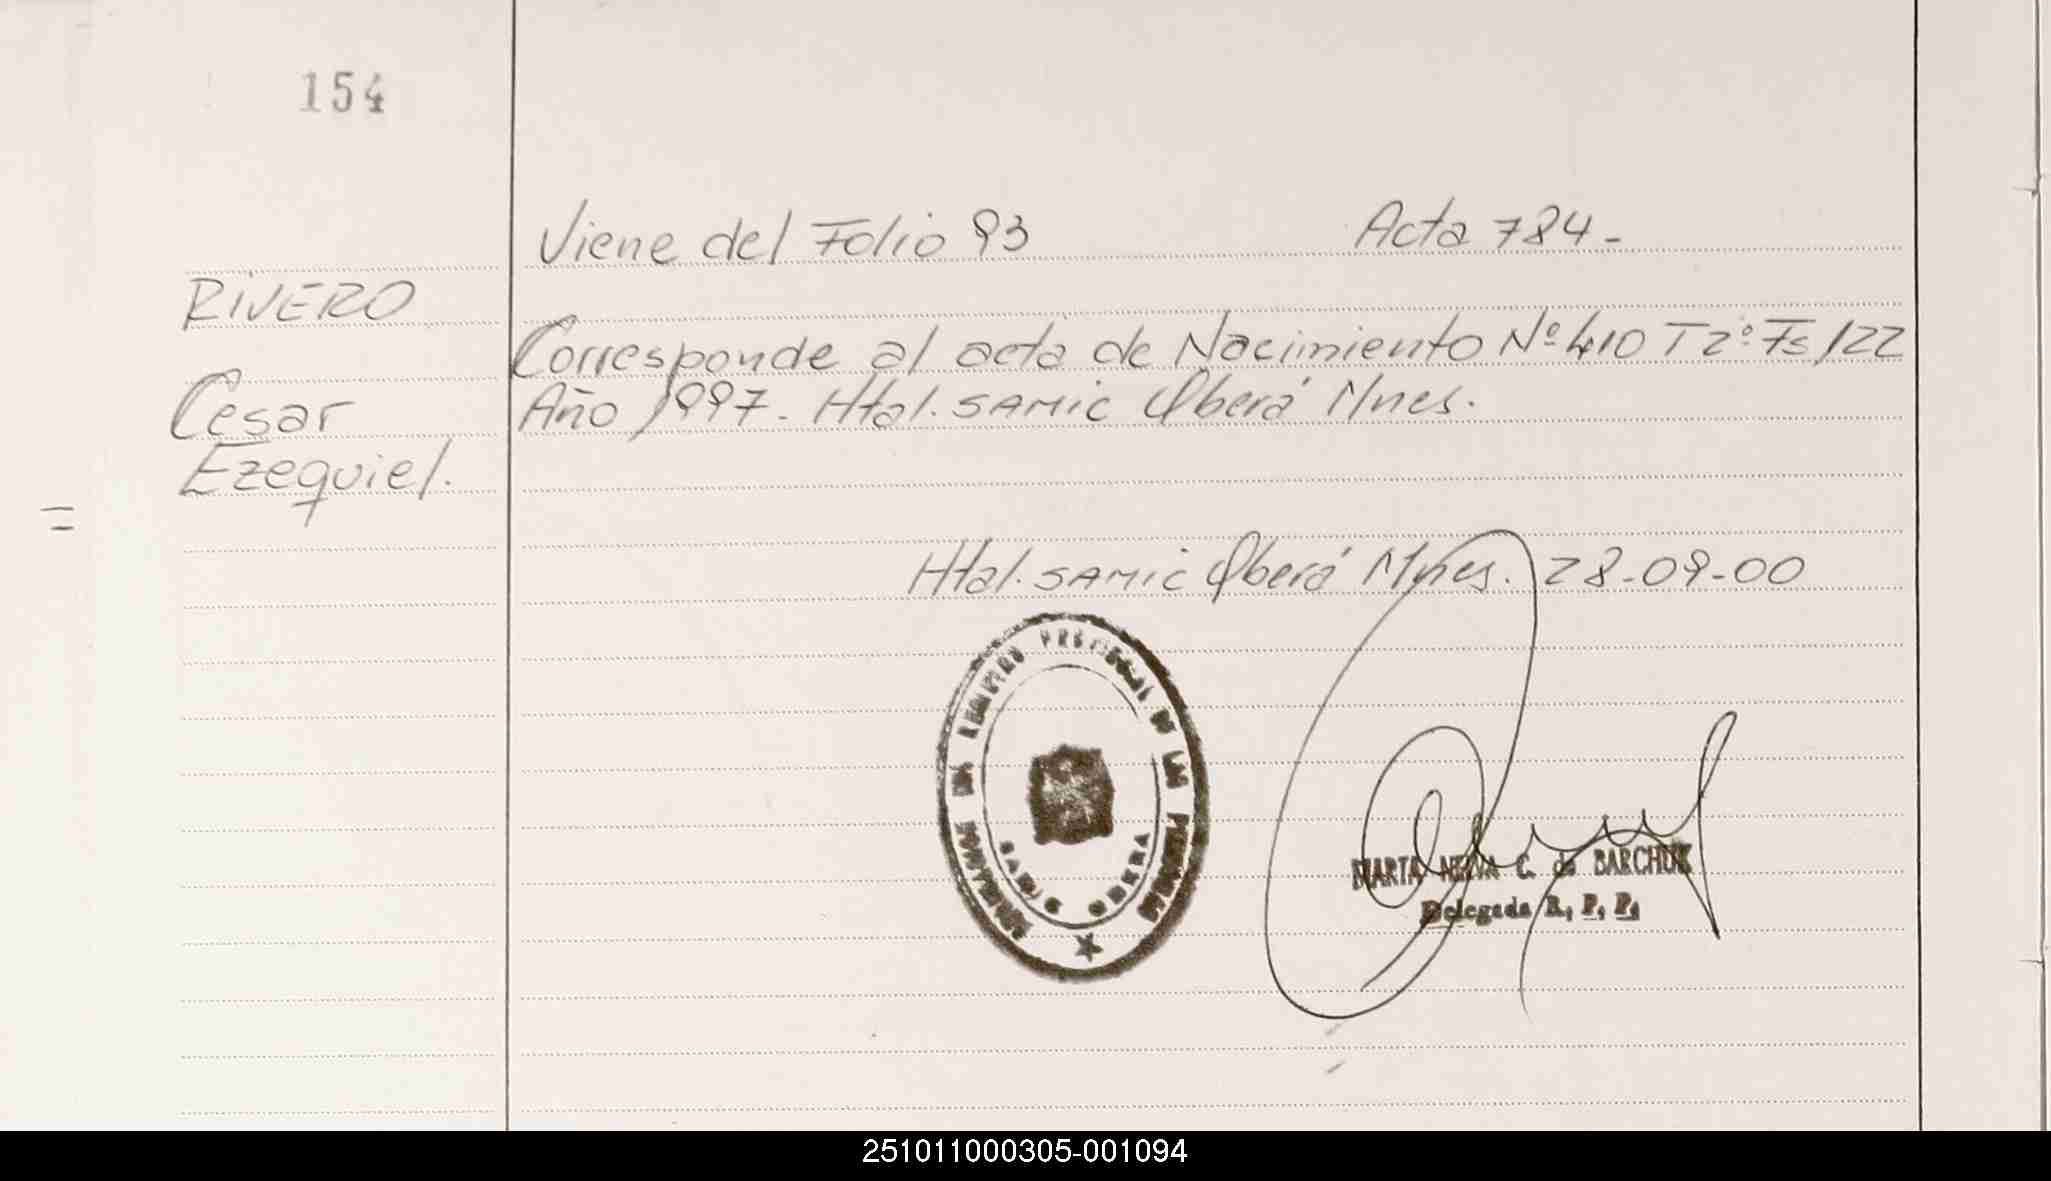 154
Viene del Folio 93 Acta 784-
RIVERO
Corresponde al acta de Nacimiento Nº 410 T2º Fs/122
Cesar
Año 1997. Htal. SAMIC Oberá Mnes.
Ezequiel.
Htal. SAMIC Oberá Mnes. 28-09-00
PROVINCIAL DE LAS PERSONAS
SAMIC OBERA
MARTA NELVA C. de BARCHUK
Delegada R. P. P.
251011000305-001094